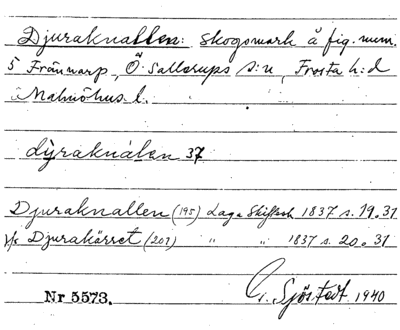 Djuraknallen: skogsmark å fig. num.
5 Frännarp, Ö. Sallerups s:n, Frosta h:d
Malmöhus l.
dýraknálen 37
Djuraknallen (195) Laga Skiftesh 1837 s. 19. 31
jfr Djurakärret (207) " " 1837 s. 20. 31
Nr 5573. G. Sjöstedt 1940